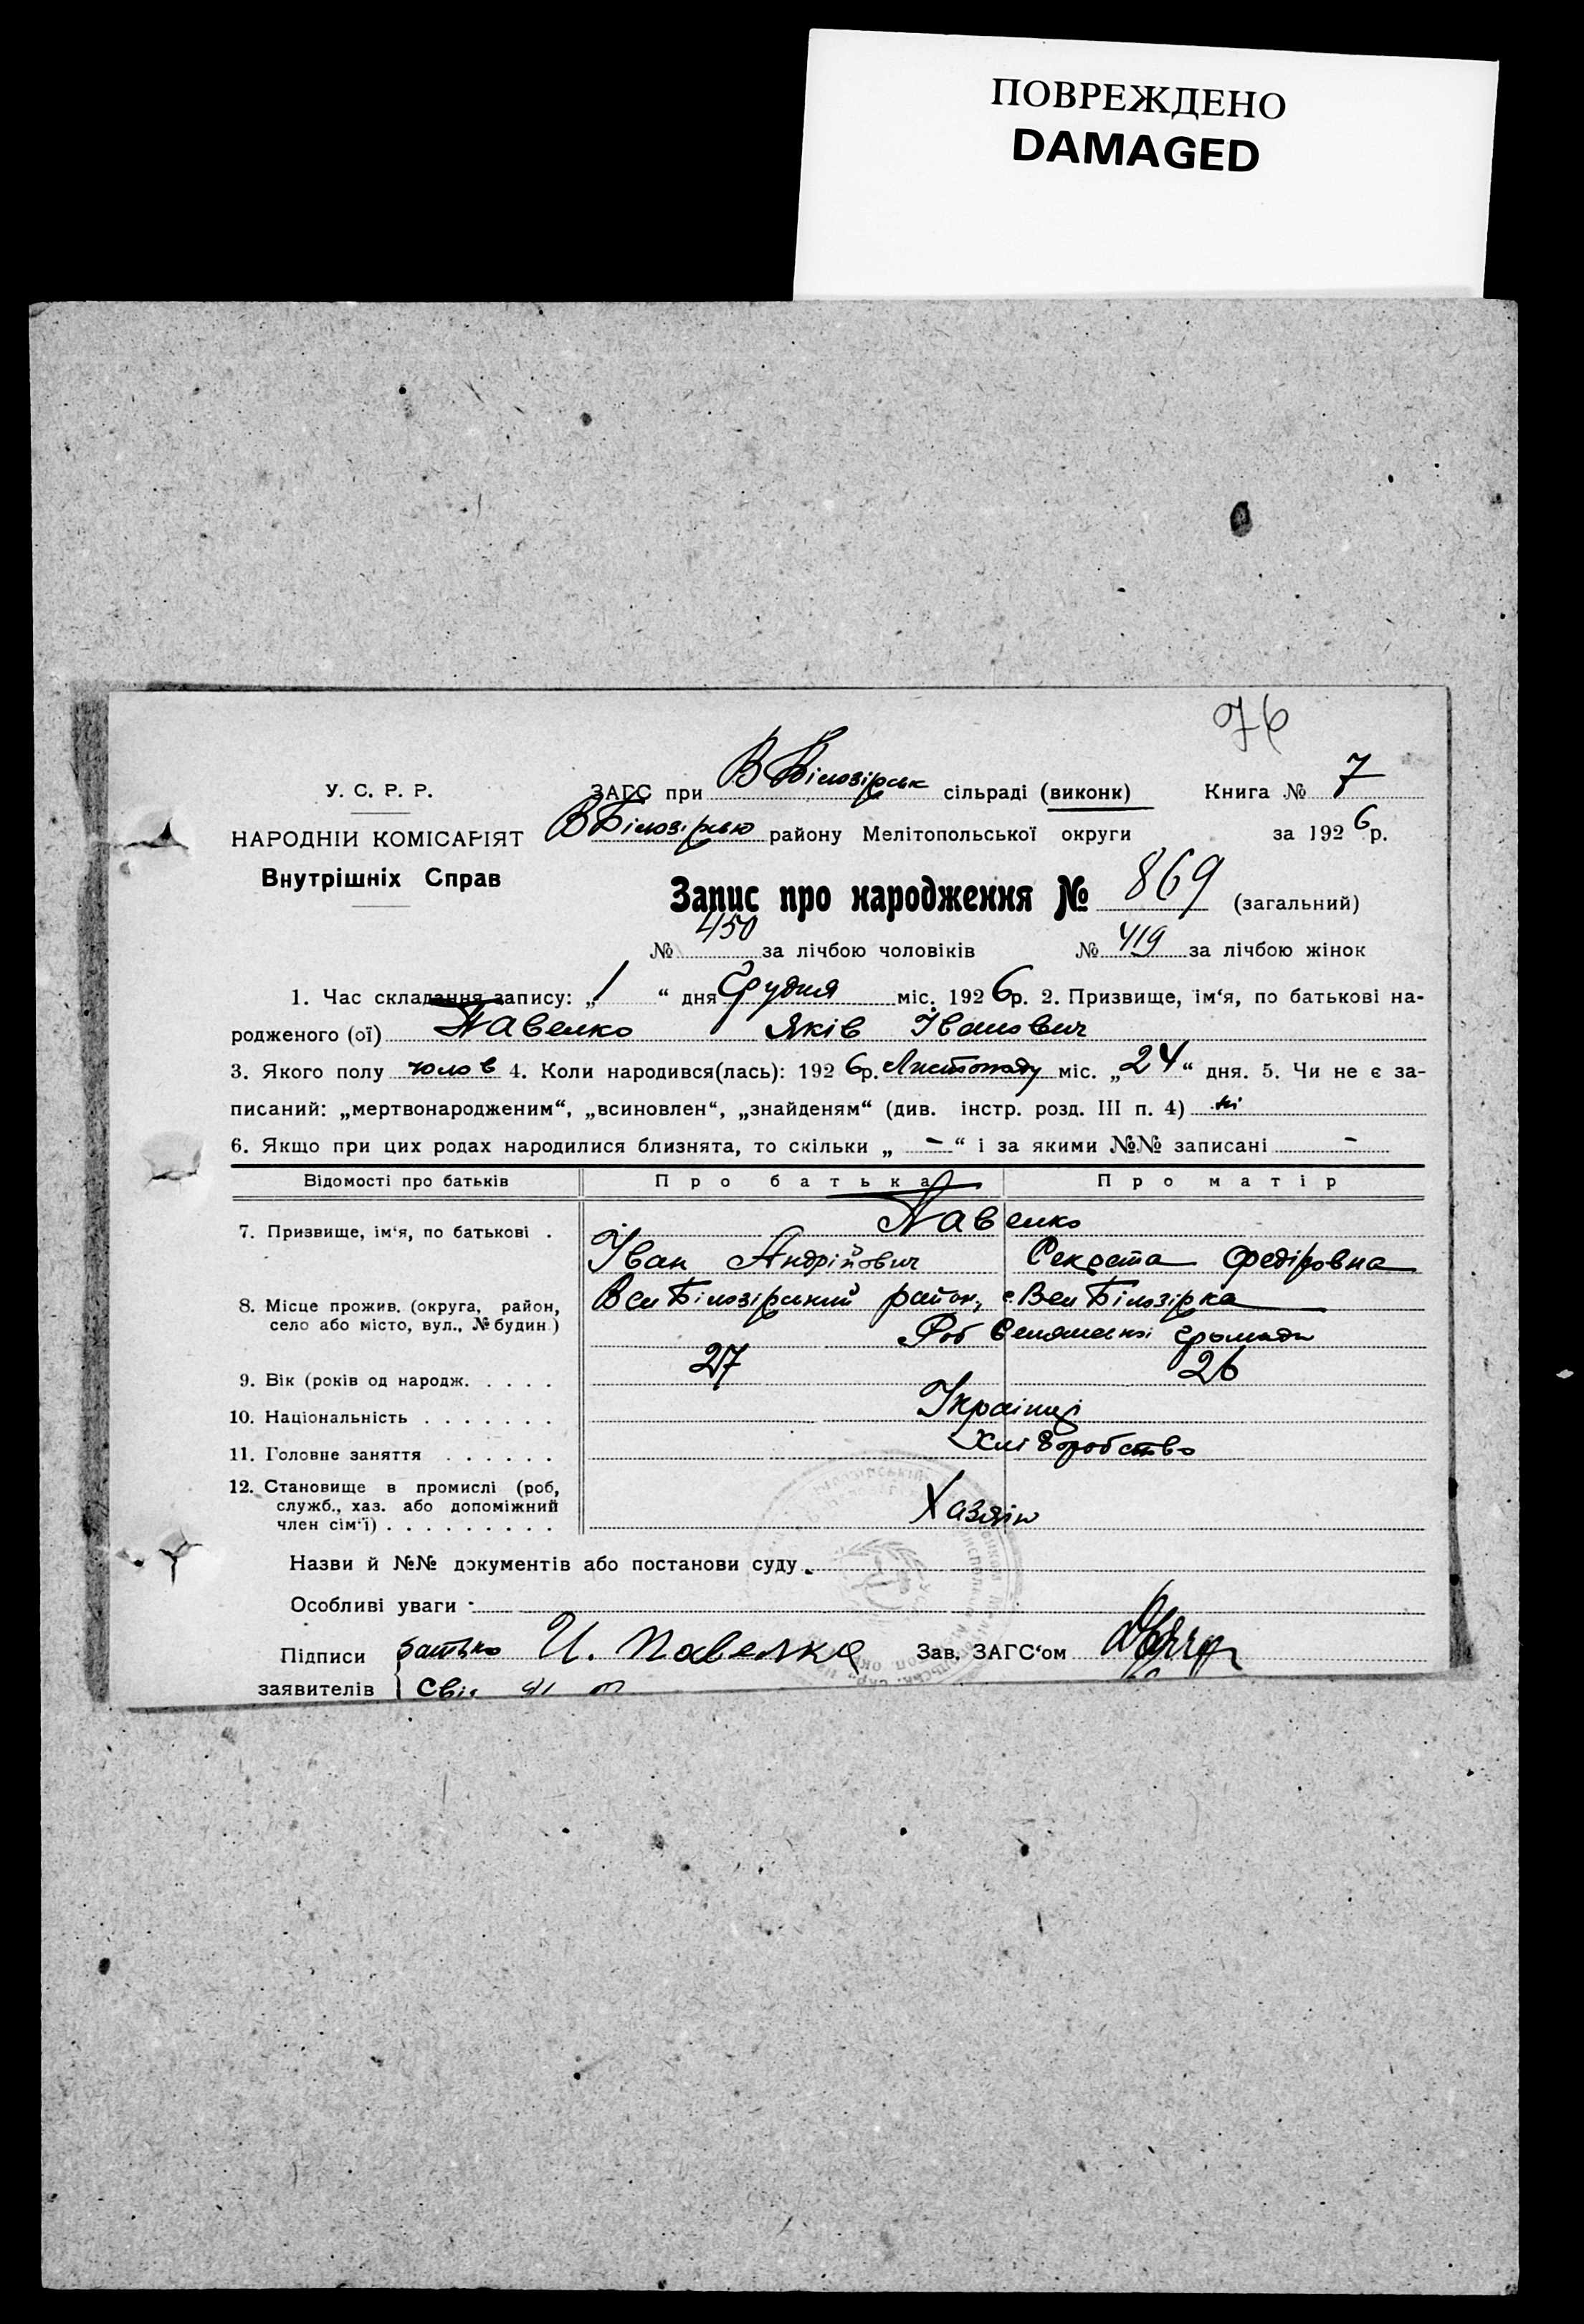 ПОВРЕЖДЕНО
DAMAGED
76
У. С. Р. Р.
ЗАГС при В Білозірськ сільраді (виконк) Книга № 7
НАРОДНІИ КОМІСАРІЯТ
В Білозірсью району Мелітопольської округи за 1926 р.
Внутрішніх Справ
Запис про народження № 869 (загальний)
№ 450 за лічбою чоловіків № 419 за лічбою жінок
1. Час складання запису: „1“ дня Грудня міс. 1926р. 2. Призвище, ім‘я, по батькові на-
родженого (ої) Павелко Яків Іванович
3. Якого полу чолов 4. Коли народився(лась): 1926р. Листопаду міс. „24“ дня. 5. Чи не є за-
писаний: „мертвонародженим“, „всиновлен“, „знайденям“ (див. інстр. розд. III п. 4) ні
6. Якщо при цих родах народилися близнята, то скільки „ – “ і за якими №№ записані –
Відомості про батьків Про батька Про матір
7. Призвище, ім‘я, по батькові . Павелко
Іван Андрійович Секлета Федіровна
8. Місце прожив. (округа, район, Вел Білозірський район, с Вел Білозірка
село або місто, вул., № будин.)
Громади
9. Вік (років од народж. . . . . 27 26
10. Національність . . . . . . . Українці
11. Головне заняття . . . . . . Хліборобство
12. Становище в промислі (роб,
служб., хаз. або допоміжний Хазяїн
член сім‘ї) . . . . . . . . .
Назви й №№ документів або постанови суду
Особливі уваги
Підписи батько И. Павелка Зав. ЗАГС‘ом
заявителів